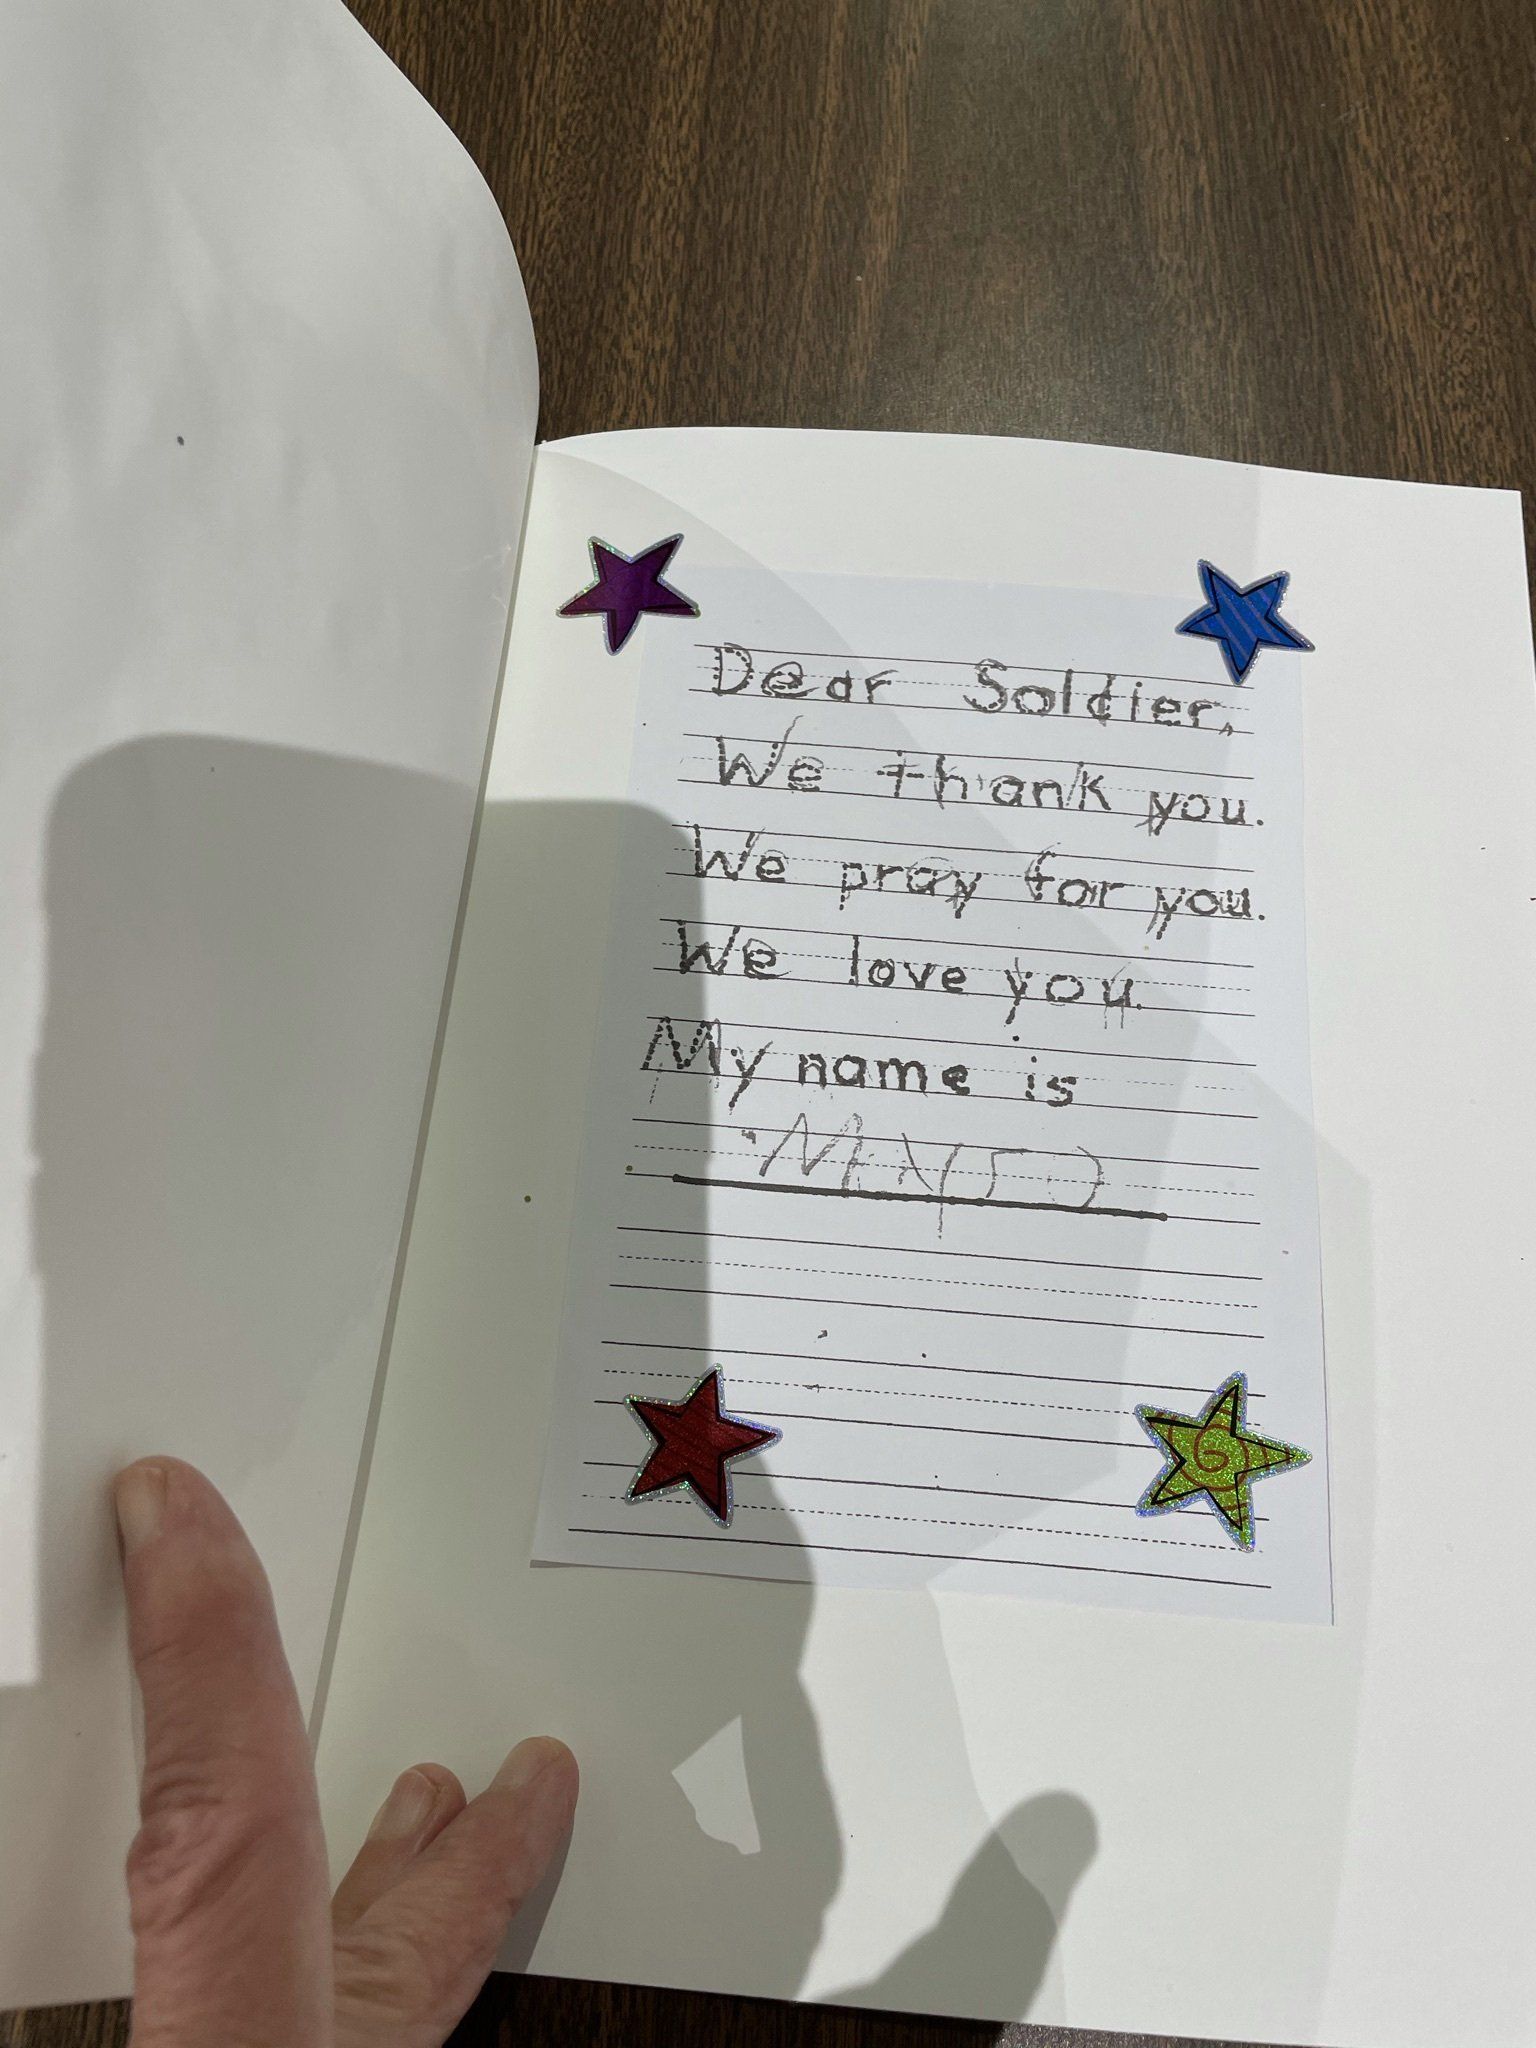 Dear Soldier,
We thank you.
We pray for you.
We love you.
My name is